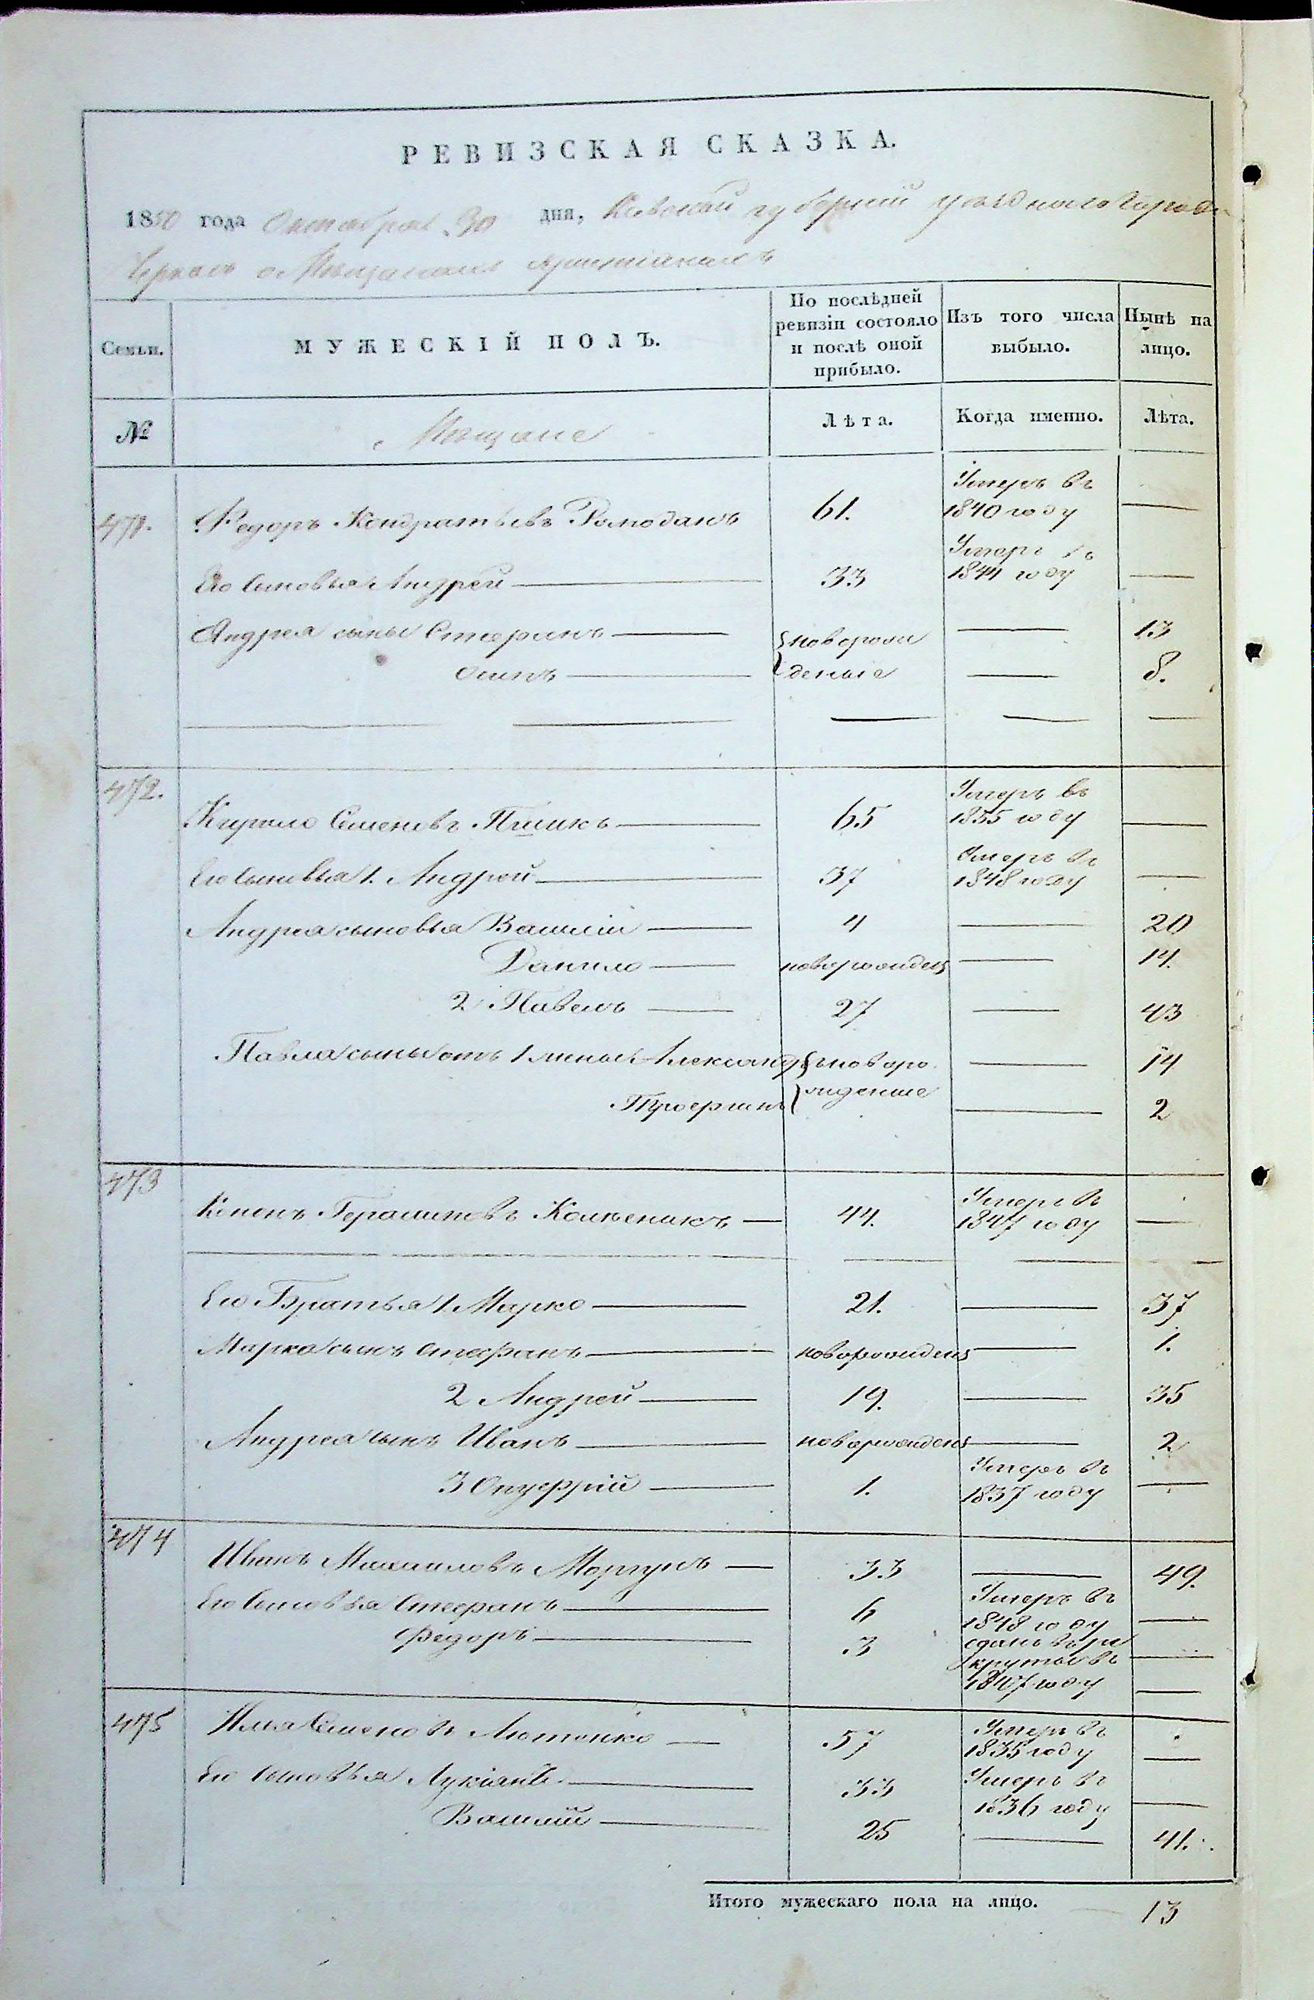 РЕВИЗСКАЯ СКАЗКА.
1850 года Октября 30 дня, Киевской губернии уезднаго города
Черкас о Мещанах христианахъ
Семьи.
МУЖЕСКІЙ ПОЛЪ.
По послѣдней ревизіи состояло и послѣ оной прибыло.
Изъ того числа выбыло.
Нынѣ на лицо.
№
Мещане
Лѣта.
Когда именно.
Лѣта.
471. Федоръ Кондратьевъ Ромоданъ 61. Умеръ въ 1840 году
Его сыновья Андрей 33 Умеръ въ 1844 году
Андрея сыны Стефанъ новорож 13
Осипъ деные 8.
472. Кирило Семеновъ 65 Умеръ въ 1835 году
Его сыновья 1. Андрей 37 Умеръ въ 1848 году
Андрея сыновья Василій 4 20
Данило новорожденъ 14.
2 Павелъ 27 43
Павла сыны отъ 1 жены Александръ новоро 14
жденные 2
473 Кононъ Герасимовъ 44. Умеръ въ 1847 году
Его Братья 1 Марко 21. 37
Марка сынъ Стефанъ новорожденъ 1.
2 Андрей 19. 35
Андрея сынъ Иванъ новорожденъ 2
3 Онуфрій 1. Умеръ въ 1837 году
474 Иванъ Михайловъ Моргунъ 33 49.
Его сыновья Стефанъ 6 Умеръ въ 1848 году
Федоръ 3 сданъ въ рекруты въ 1847 году
475 Илья Семеновъ Лютенко 57 Умеръ въ 1835 году
Его сыновья Лукіянъ 33 Умеръ въ 1836 году
Василій 25 41.
Итого мужескаго пола на лицо. 13